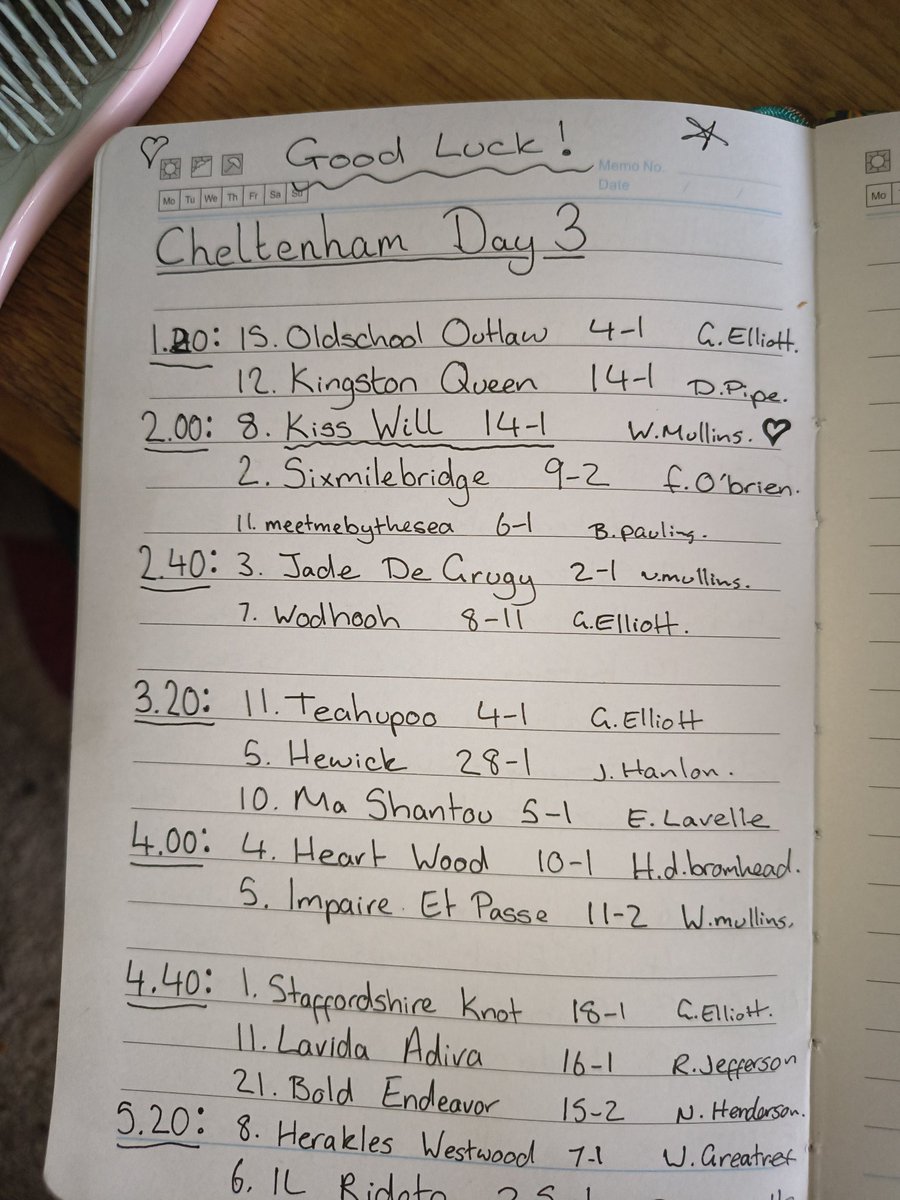 Good Luck!
Memo No.
Date /
Mo Tu We Th Fr Sa Su
Mo
Cheltenham Day 3
1.20: 15. Oldschool Outlaw 4-1 G.Elliott.
12. Kingston Queen 14-1 D.Pipe.
2.00: 8. Kiss Will 14-1 W.Mullins.
2. Sixmilebridge 9-2 f. O'brien.
11. meetmebythesea 6-1 B.pauling.
2.40: 3. Jade De Grugy 2-1 w.mullins.
7. Wodhooh 8-11 G.Elliott.
3.20: 11. Teahupoo 4-1 G.Elliott
5. Hewick 28-1 J. Hanlon.
10. Ma Shantou 5-1 E. Lavelle
4.00: 4. Heart Wood 10-1 H.d.bromhead.
5. Impaire Et Passe 11-2 W.mullins.
4.40: 1. Staffordshire Knot 18-1 G.Elliott.
11. Lavida Adiva 16-1 R.Jefferson
21. Bold Endeavor 15-2 N. Henderson.
5.20: 8. Herakles Westwood 7-1 W.Greatrex
6. IL Ridoto